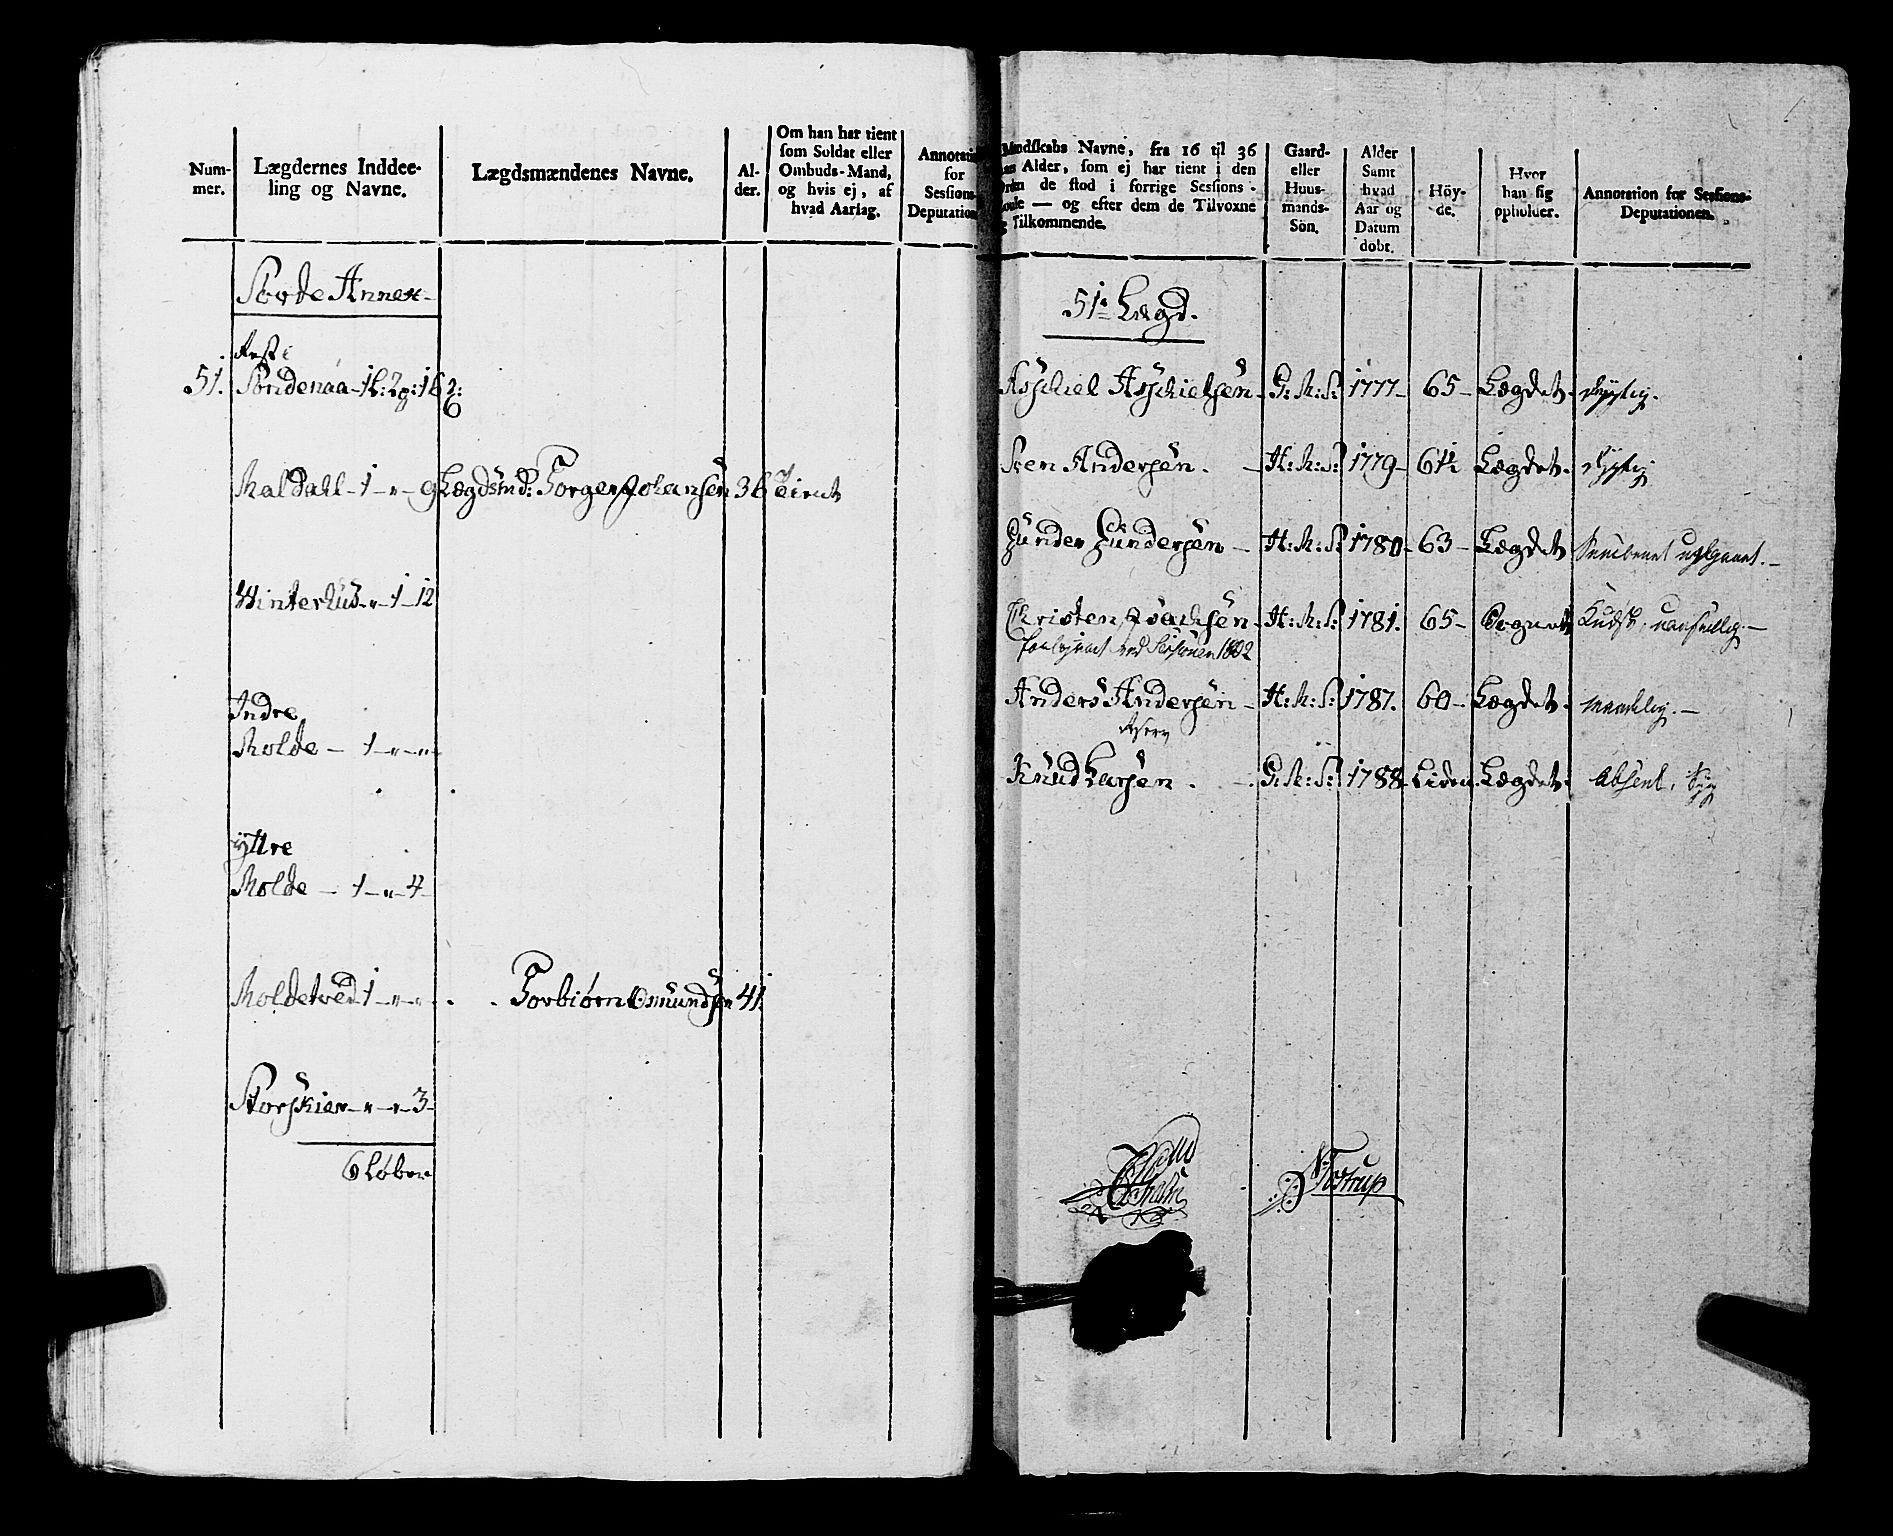 Num-
mer.
Lægdernes Inddee-
ling og Navne.
Lægdsmændenes Navne.
Al-
der.
Om han har tient
som Soldat eller
Ombuds-Mand,
og hvis ej, af
hvad Aarsag.
Annotati
for
Sessions-
Deputation
Sovde Annex
Rest i
51. Søndenaa - 1 L: 2 g: 16 2:
6
Maldahl - 1 - " - 9 Lægdsmd: Torger Johansen 36 Tient
Winterhus - " - 1 - 12
Indre
Molde - 1 - " - "
Yttre
Molde - 1 - " - 4
Moldetved 1 - " - " Torbiørn Omundsen 41
Storskier - " - " - 3
6 Løber
Mandskabs Navne, fra 16 til 36
Aars Alder, som ej har tient i den
Orden de stod i forrige Sessions-
Roulle — og efter dem de Tilvoxne
og Tilkommende.
Gaard-
eller
Huus-
mands-
Søn.
Alder
Samt
hvad
Aar og
Datum
døbt.
Höy-
de.
Hvor
han sig
opholder.
Annotation for Sessions-
Deputationen.
51. Lægd.
Aschiel Aschielsen - G: M: S: 1777 - 65 - Lægdet. dygtig.
Sven Andersen. - H: M: S: 1779 - 61½ Lægdet. dygtig
Gunder Gundersen - H: M: S: 1780 - 63 - Lægdet udgaaet.
Christen Isachsen - H: M: S: 1781. 65 - Sognet Kudsk, uanseelig. -
ved Sessionen 1802
Anders Andersen - H: M: S: 1787. 60 - Lægdet. maadelig. -
Knud Larsen. - G: M: S: 1788 Liden. Lægdet. Absent, syg
Holm
N: Tostrup